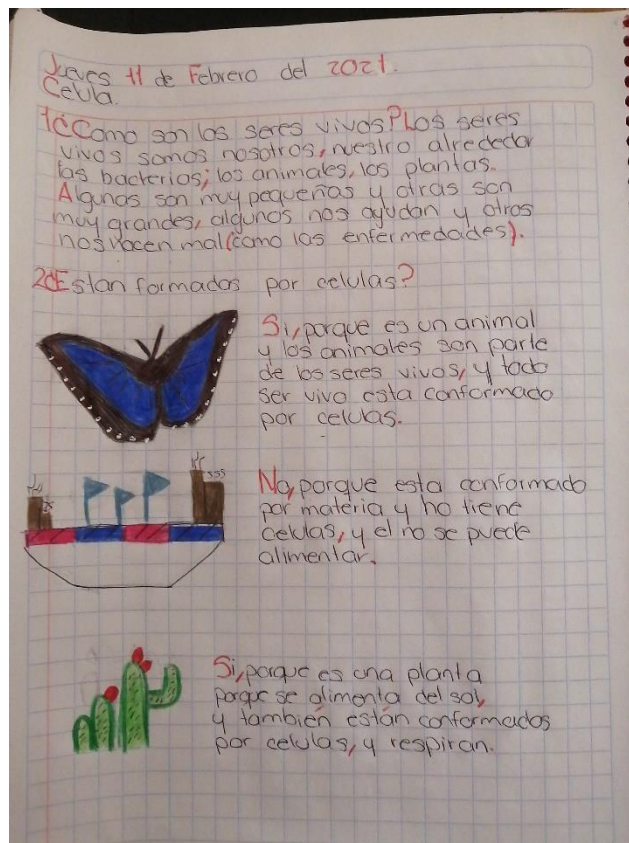 Jueves 11 de Febrero del 2021.
Celula.
1¿Como son los seres vivos? Los seres
vivos somos nosotros, nuestro alrededor
las bacterias; los animales, las plantas.
Algunas son muy pequeñas y otras son
muy grandes, algunos nos ayudan y otros
nos hacen mal (como las enfermedades).
2¿Estan formados por celulas?
Si, porque es un animal
y los animales son parte
de los seres vivos, y todo
ser vivo esta conformado
por celulas.
No, porque esta conformado
por materia y no tiene
celulas, y el no se puede
alimentar.
Si, porque es una planta
porque se alimenta del sol,
y también están conformados
por celulas, y respiran.